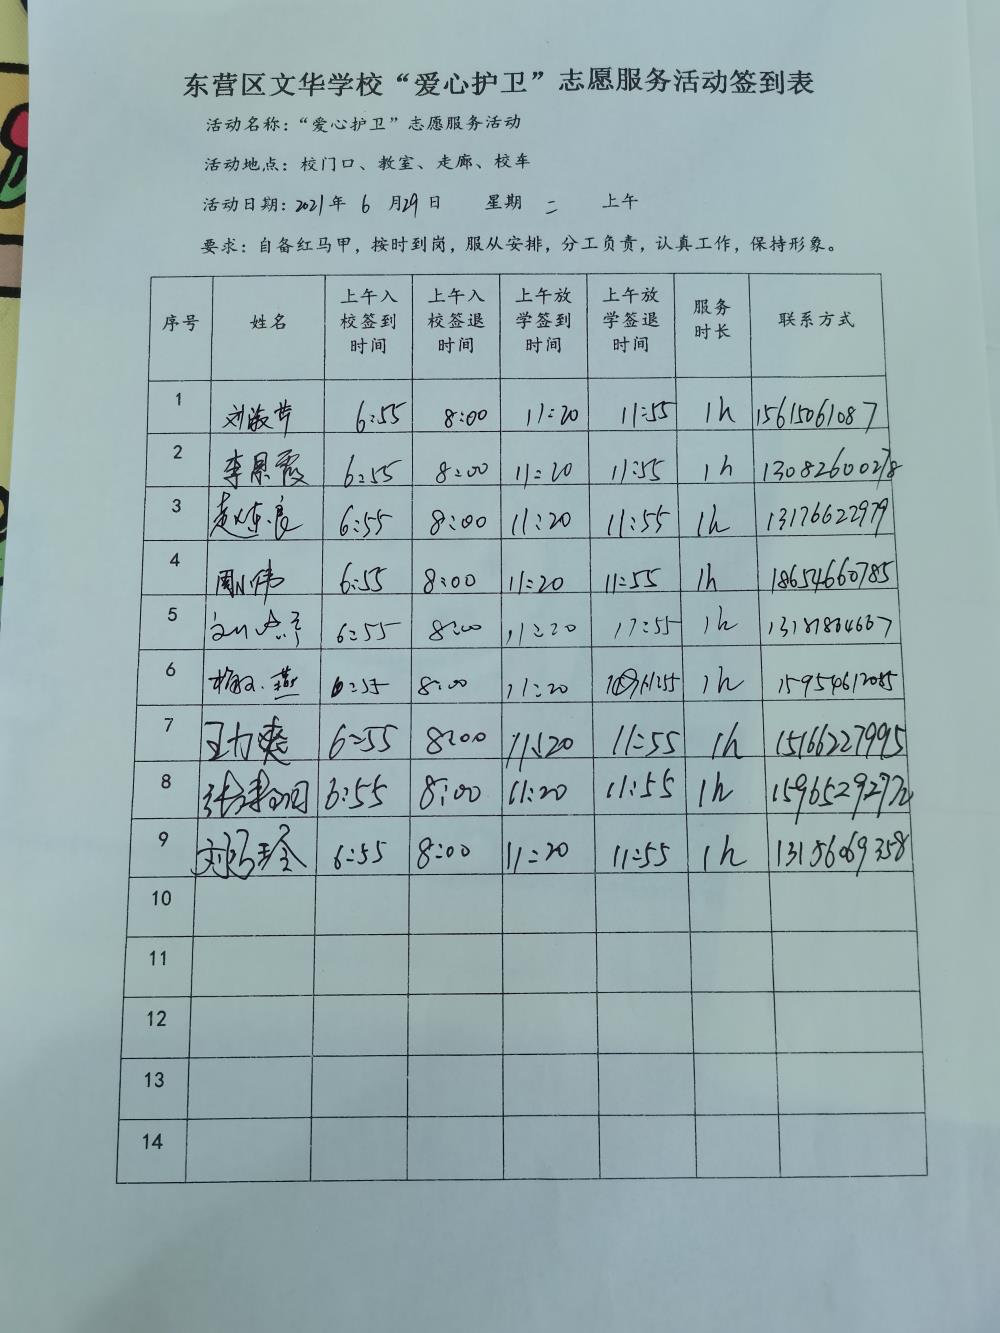 东营区文华学校“爱心护卫”志愿服务活动签到表
活动名称：“爱心护卫”志愿服务活动
活动地点：校门口、教室、走廊、校车
活动日期：2021年 6 月29日 星期 二 上午
要求：自备红马甲，按时到岗，服从安排，分工负责，认真工作，保持形象。
序号 姓名 上午入校签到时间 上午入校签退时间 上午放学签到时间 上午放学签退时间 服务时长 联系方式
1 6:55 8:00 11:20 11:55 1h 15615061087
2 李恩霞 6:55 8:00 11:20 11:55 1h 13082600278
3 6:55 8:00 11:20 11:55 1h 13176622979
4 周小伟 6:55 8:00 11:20 11:55 1h 18654660785
5 6:55 8:00 11:20 11:55 1h
6 6:55 8:00 11:20 11:55 1h 15954612085
7 王力爽 6:55 8:00 11:20 11:55 1h 15166227995
8 6:55 8:00 11:20 11:55 1h 15965292772
9 6:55 8:00 11:20 11:55 1h 13156069358
10
11
12
13
14